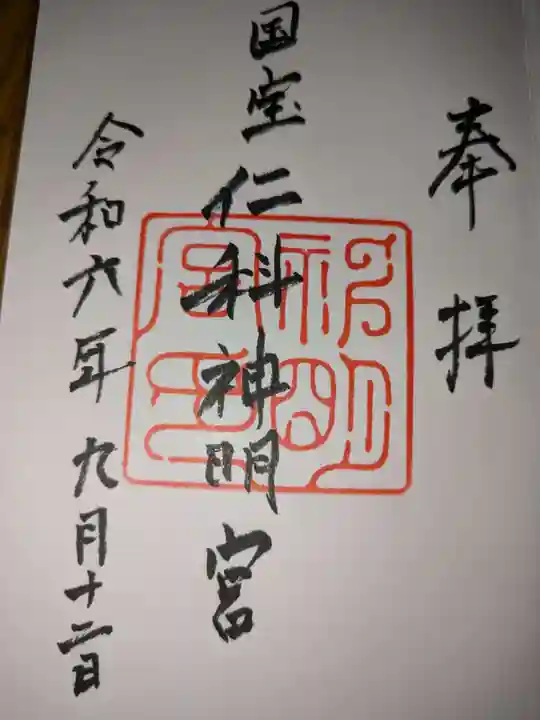 奉拝
国宝仁科神明宮
令和六年九月十二日